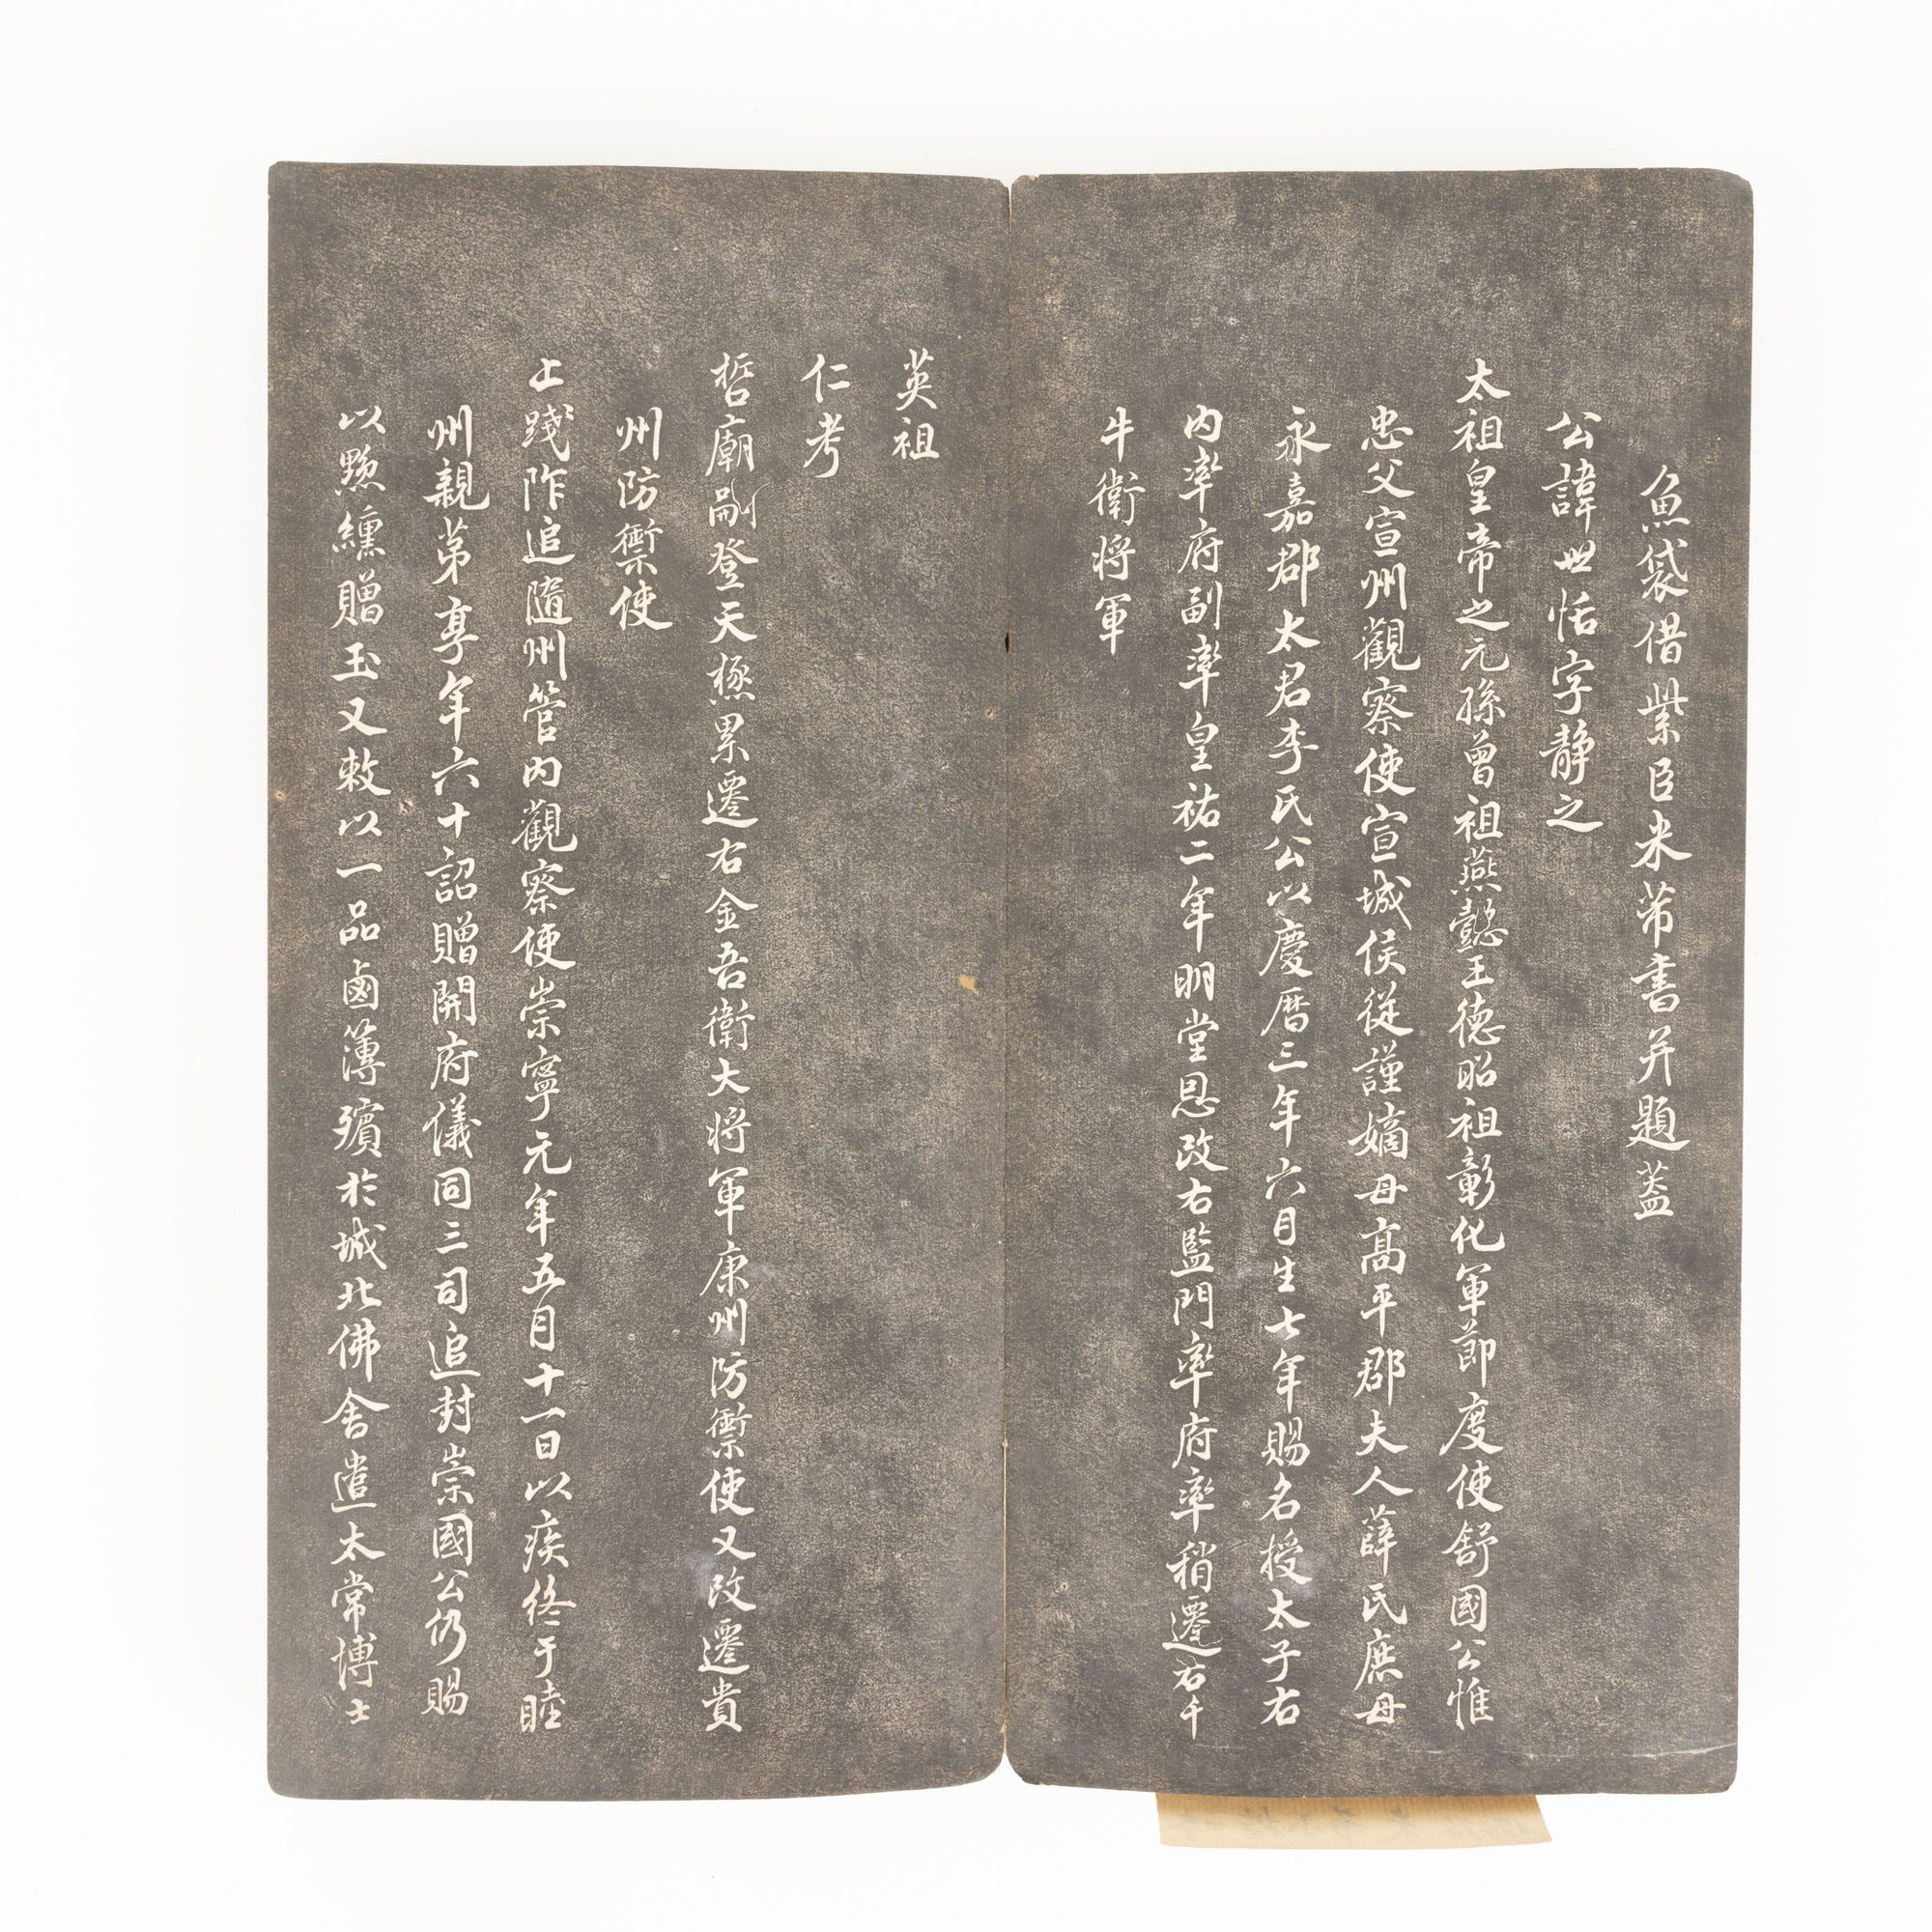 魚袋借紫臣米芾書并題蓋
公諱世恬字靜之
太祖皇帝之元孫曾祖燕懿王德昭祖彰化軍節度使舒國公惟
忠父宣州觀察使宣城侯從謹嫡母高平郡夫人薛氏庶母
永嘉郡太君李氏公以慶曆三年六月生七年賜名授太子右
內率府副率皇祐二年明堂恩改右監門率府率稍遷右千
牛衛將軍
英祖
仁考
哲廟嗣登天極累遷右金吾衛大將軍康州防禦使又改遷貴
州防禦使
上踐阼追隨州管內觀察使崇寧元年五月十一日以疾終于睦
州親苐享年六十詔贈開府儀同三司追封崇國公仍賜
以黻纁贈玉又敕以一品鹵簿殯於城北佛舍遣太常博士